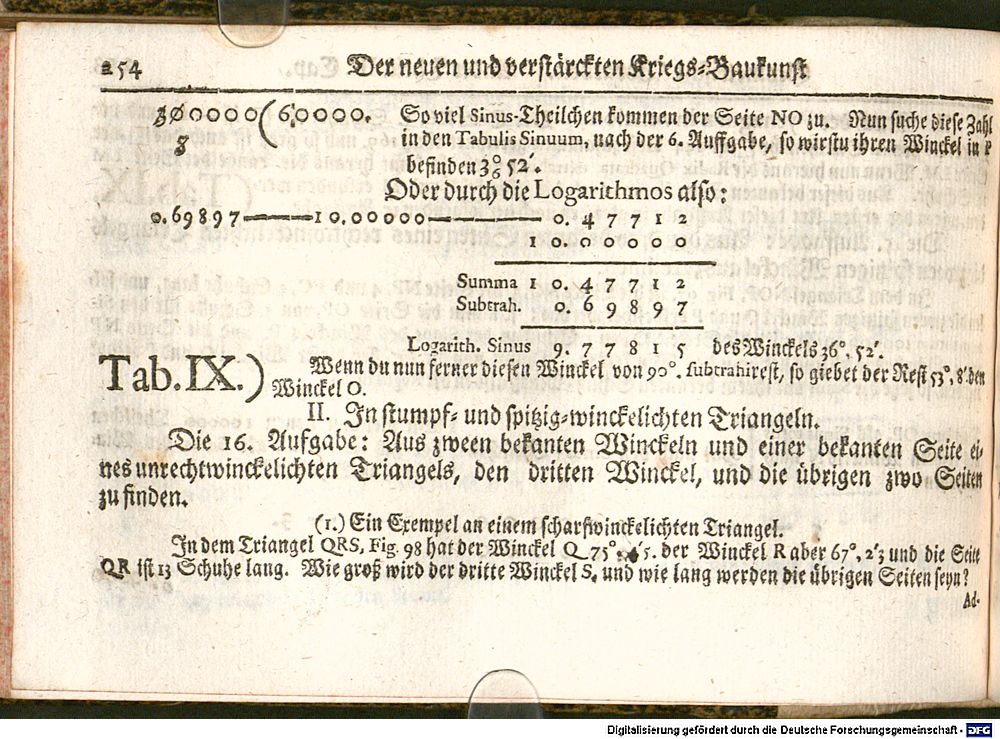 254 Der neuen und verstärckten Kriegs-Baukunst
300000 ( 60000. So viel Sinus-Theilchen kommen der Seite NO zu. Nun suche diese Zahl
5 in den Tabulis Sinuum, nach der 6. Auffgabe, so wirstu ihren Winckel in
befinden 36° 52´.
Oder durch die Logarithmos also:
0.69897——10.00000——0.47712
10.00000
Summa 10.47712
Subtrah. 0.69897
Logarith. Sinus 9.77815 des Winckels 36°. 52´.
Tab. IX.) Wenn du nun ferner diesen Winckel von 90°. subtrahirest, so giebet der Rest 53°, 8´ den
Winckel O.
II. In stumpf- und spitzig-winckelichten Triangeln.
Die 16. Aufgabe: Aus zween bekanten Winckeln und einer bekanten Seite ei-
nes unrechtwinckelichten Triangels, den dritten Winckel, und die übrigen zwo Seiten
zu finden.
(1.) Ein Exempel an einem scharfwinckelichten Triangel.
In dem Triangel QRS, Fig. 98 hat der Winckel Q 75°, 45. der Winckel R aber 67°, 2´3 und die Seite
QR ist 13 Schuhe lang. Wie groß wird der dritte Winckel S, und wie lang werden die übrigen Seiten seyn?
Ad-
Digitalisierung gefördert durch die Deutsche Forschungsgemeinschaft - DFG